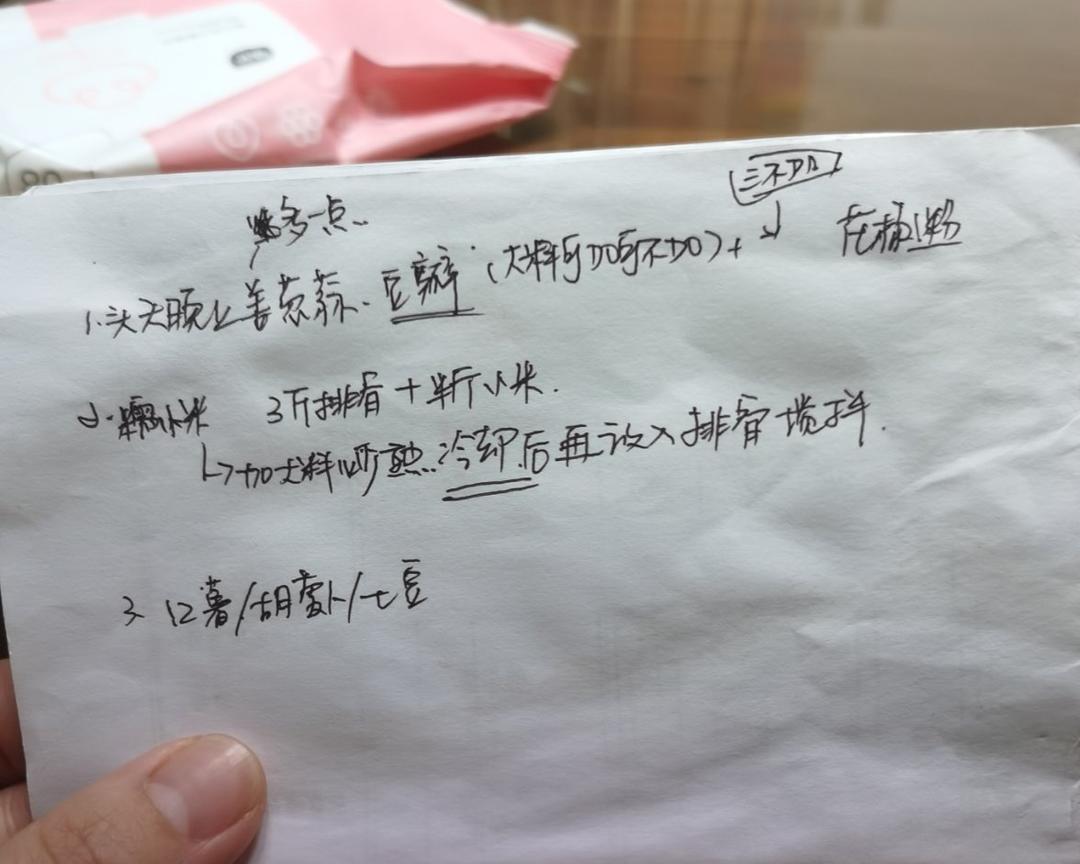 90
三不加
多一点..
1.头天晚上姜葱蒜、豆瓣(大料可加可不加)+ ↓ 花椒粉
小米 3斤排骨+半斤小米.
↳加大料炒熟..冷却后再放入排骨搅拌.
3、红薯/胡萝卜/土豆